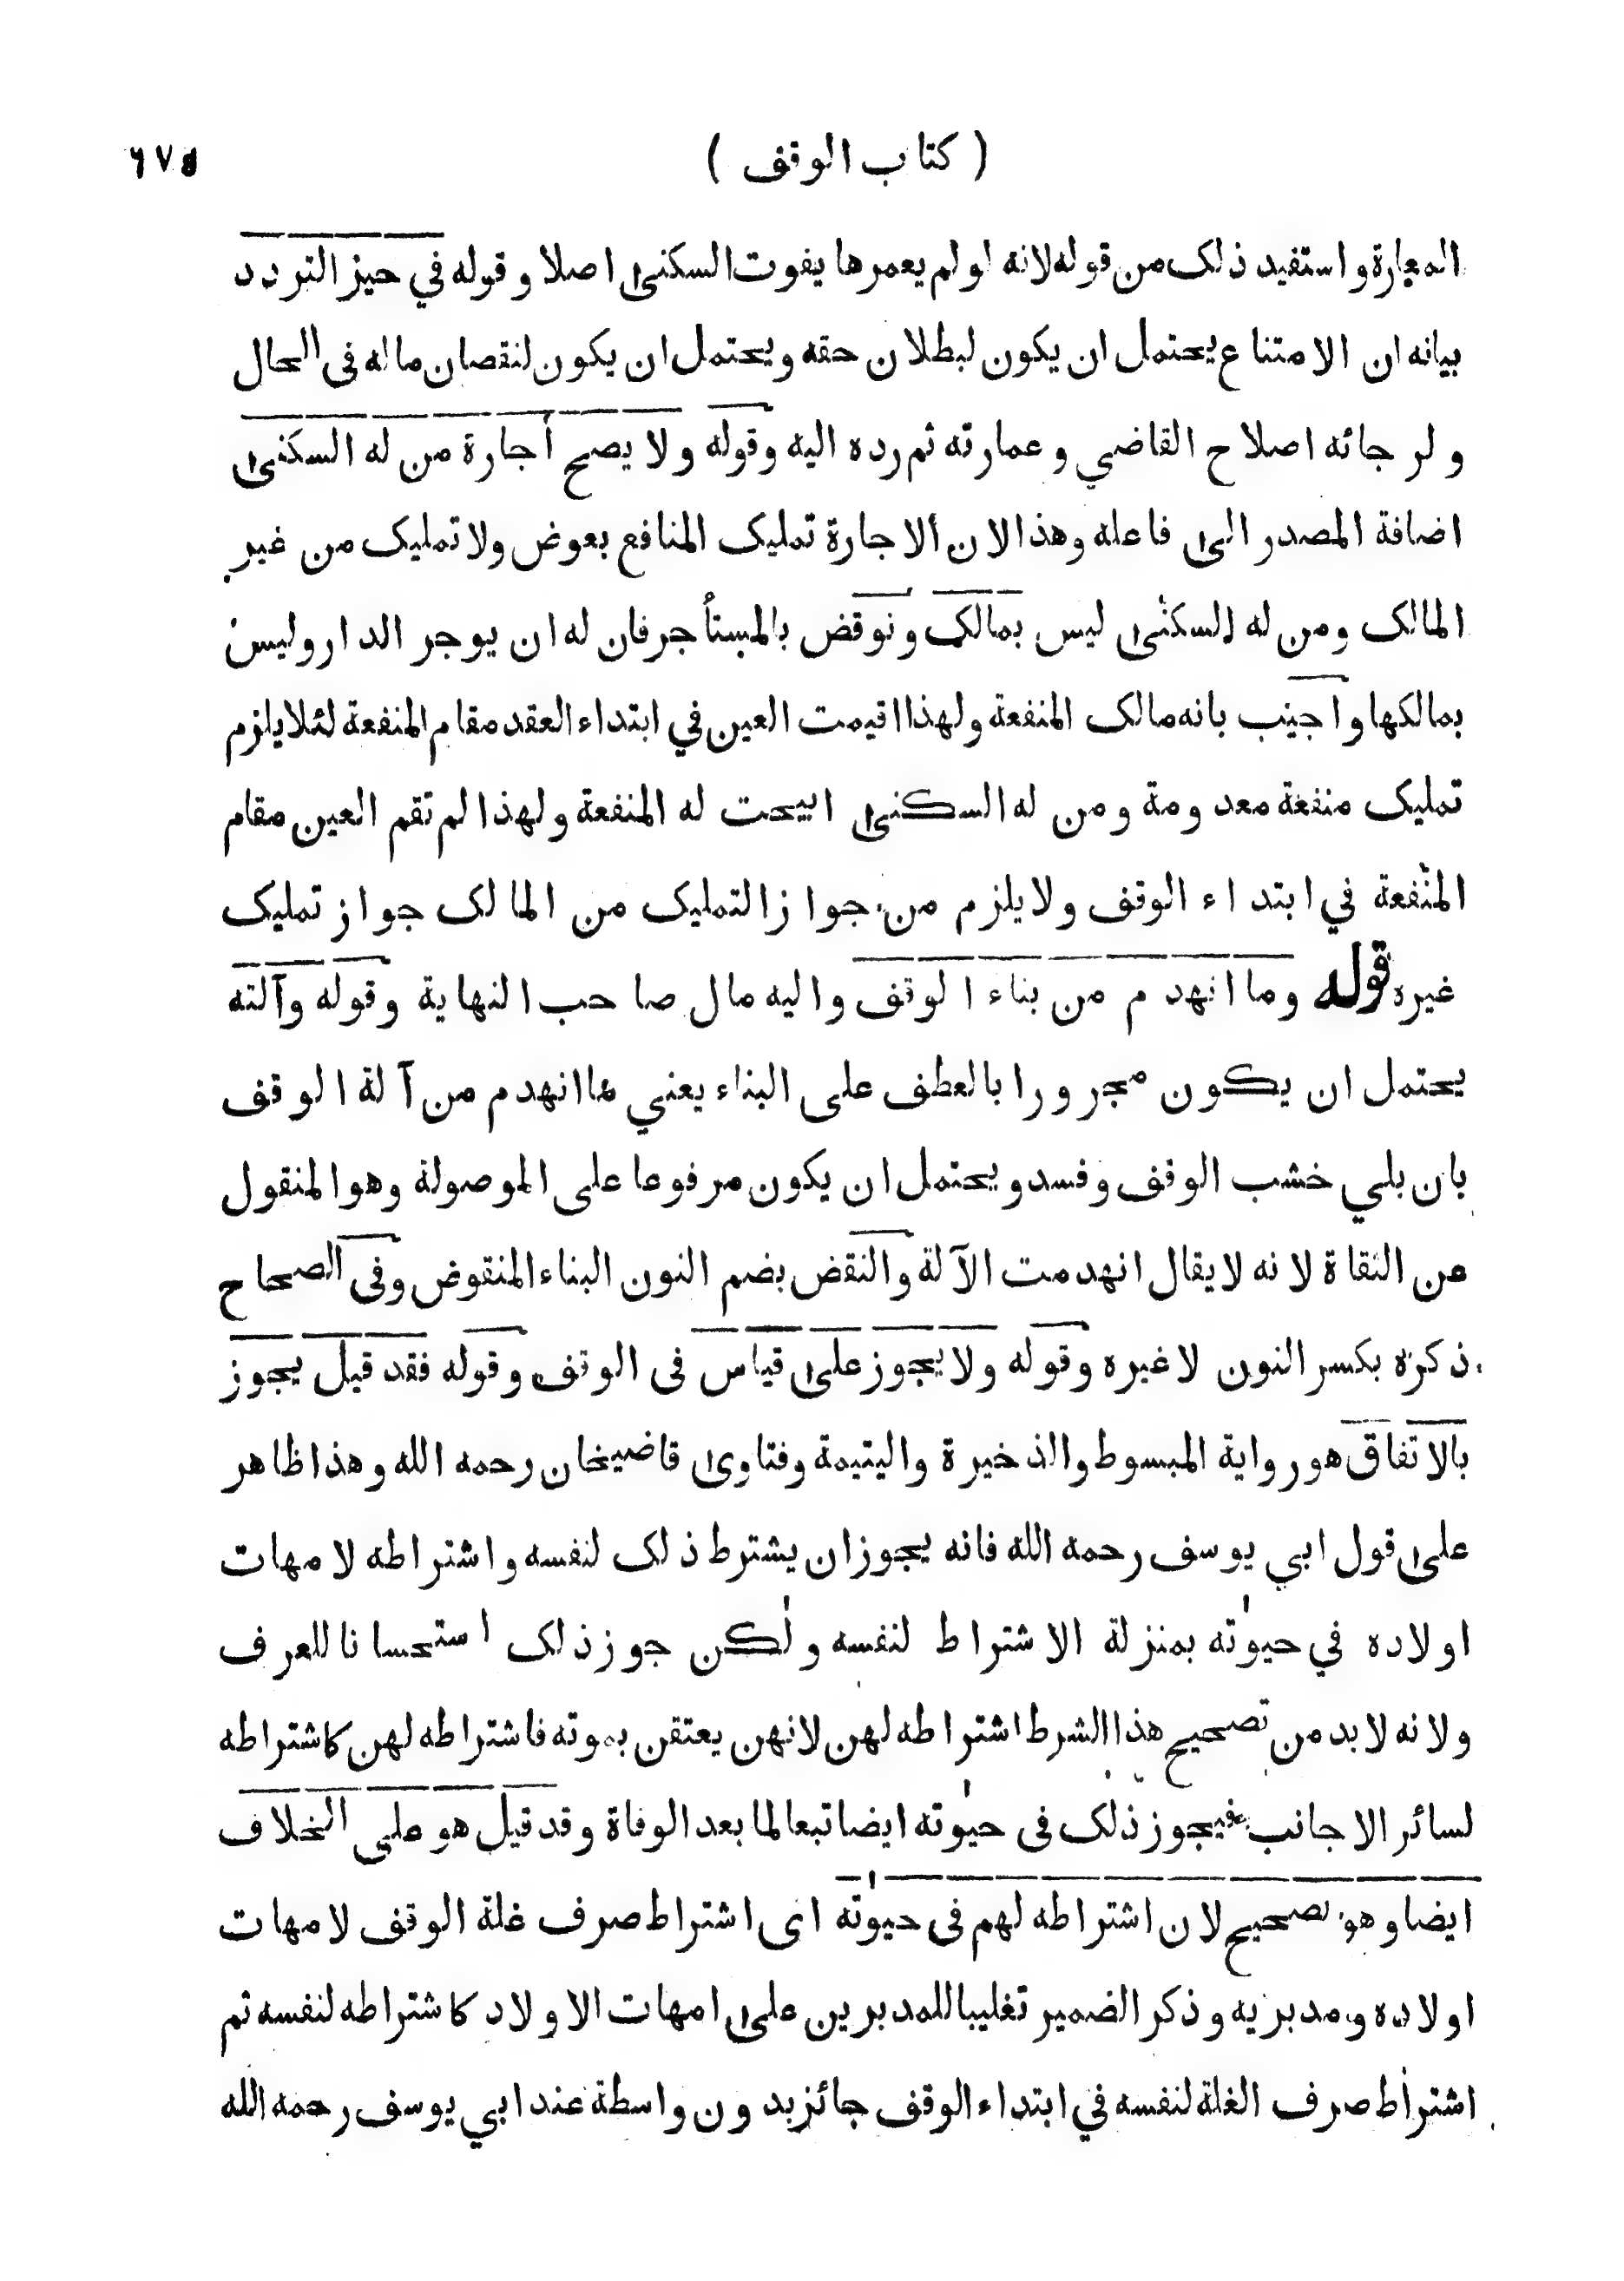 ( كتاب الوقف ) ٦٧٥
المعارة واستفيد ذلك من قوله لانه لو لم يعمرها يفوت السكنى اصلا وقوله في حيز التردد
بيانه ان الامتناع يحتمل ان يكون لبطلان حقه ويحتمل ان يكون لنقصان ماله فى الحال
ولرجائه اصلاح القاضي وعمارته ثم رده اليه وقوله ولا يصح أجارة من له السكنى
اضافة المصدر الى فاعله وهذا لان ألاجارة تمليك المنافع بعوض ولا تمليك من غير
المالك ومن له السكنى ليس بمالك ونوقض بالمستأجر فان له ان يوجر الدار وليس
بمالكها واجيب بانه مالك المنفعة ولهذا اقيمت العين في ابتداء العقد مقام المنفعة لئلا يلزم
تمليك منفعة معدومة ومن له السكنى ابيحت له المنفعة ولهذا لم تقم العين مقام
المنفعة في ابتداء الوقف ولا يلزم من جواز التمليك من المالك جواز تمليك
غيره قوله وما انهدم من بناء الوقف واليه مال صاحب النهاية وقوله وآلته
يحتمل ان يكون مجرورا بالعطف على البناء يعني ما انهدم من آلة الوقف
بان بلي خشب الوقف وفسد ويحتمل ان يكون مرفوعا على الموصولة وهو المنقول
من الثقاة لانه لا يقال انهدمت الآلة والنقض بضم النون البناء المنقوض وفى الصحاح
ذكره بكسر النون لا غيره وقوله ولا يجوز على قياس فى الوقف وقوله فقد قيل يجوز
بالاتفاق هو رواية المبسوط والذخيرة واليتيمة وفتاوى قاضيخان رحمه الله وهذا ظاهر
على قول ابي يوسف رحمه الله فانه يجوز ان يشترط ذلك لنفسه واشتراطه لامهات
اولاده في حيوته بمنزلة الاشتراط لنفسه ولكن جوز ذلك استحسانا للعرف
ولانه لا بد من تصحيح هذا الشرط اشتراطه لهن لانهن يعتقن بموته فاشتراطه لهن كاشتراطه
لسائر الاجانب فيجوز ذلك فى حيوته ايضا تبعا لما بعد الوفاة وقد قيل هو على الخلاف
ايضا وهو صحيح لان اشتراطه لهم فى حيوته اى اشتراط صرف غلة الوقف لامهات
اولاده ومدبريه وذكر الضمير تغليبا للمدبرين على امهات الاولاد كاشتراطه لنفسه ثم
اشتراط صرف الغلة لنفسه في ابتداء الوقف جائز بدون واسطة عند ابي يوسف رحمه الله